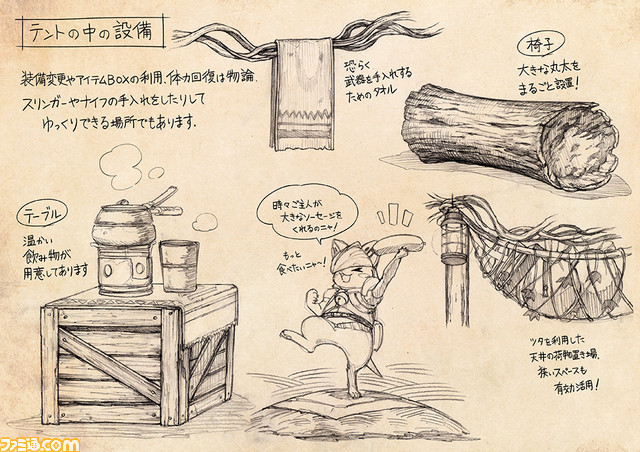 テントの中の設備
装備変更やアイテムBOXの利用、体力回復は物論、
スリンガーやナイフの手入れをしたりして
ゆっくりできる場所でもあります。
恐らく
武器を手入れする
ためのタオル
椅子
大きな丸太を
まるごと設置!
テーブル
温かい
飲み物が
用意してあります
時々ご主人が
大きなソーセージを
くれるのニャ!
もっと
食べたいニャ〜!
ツタを利用した
天井の荷物置き場。
狭いスペースも
有効活用!
ファミ通.com